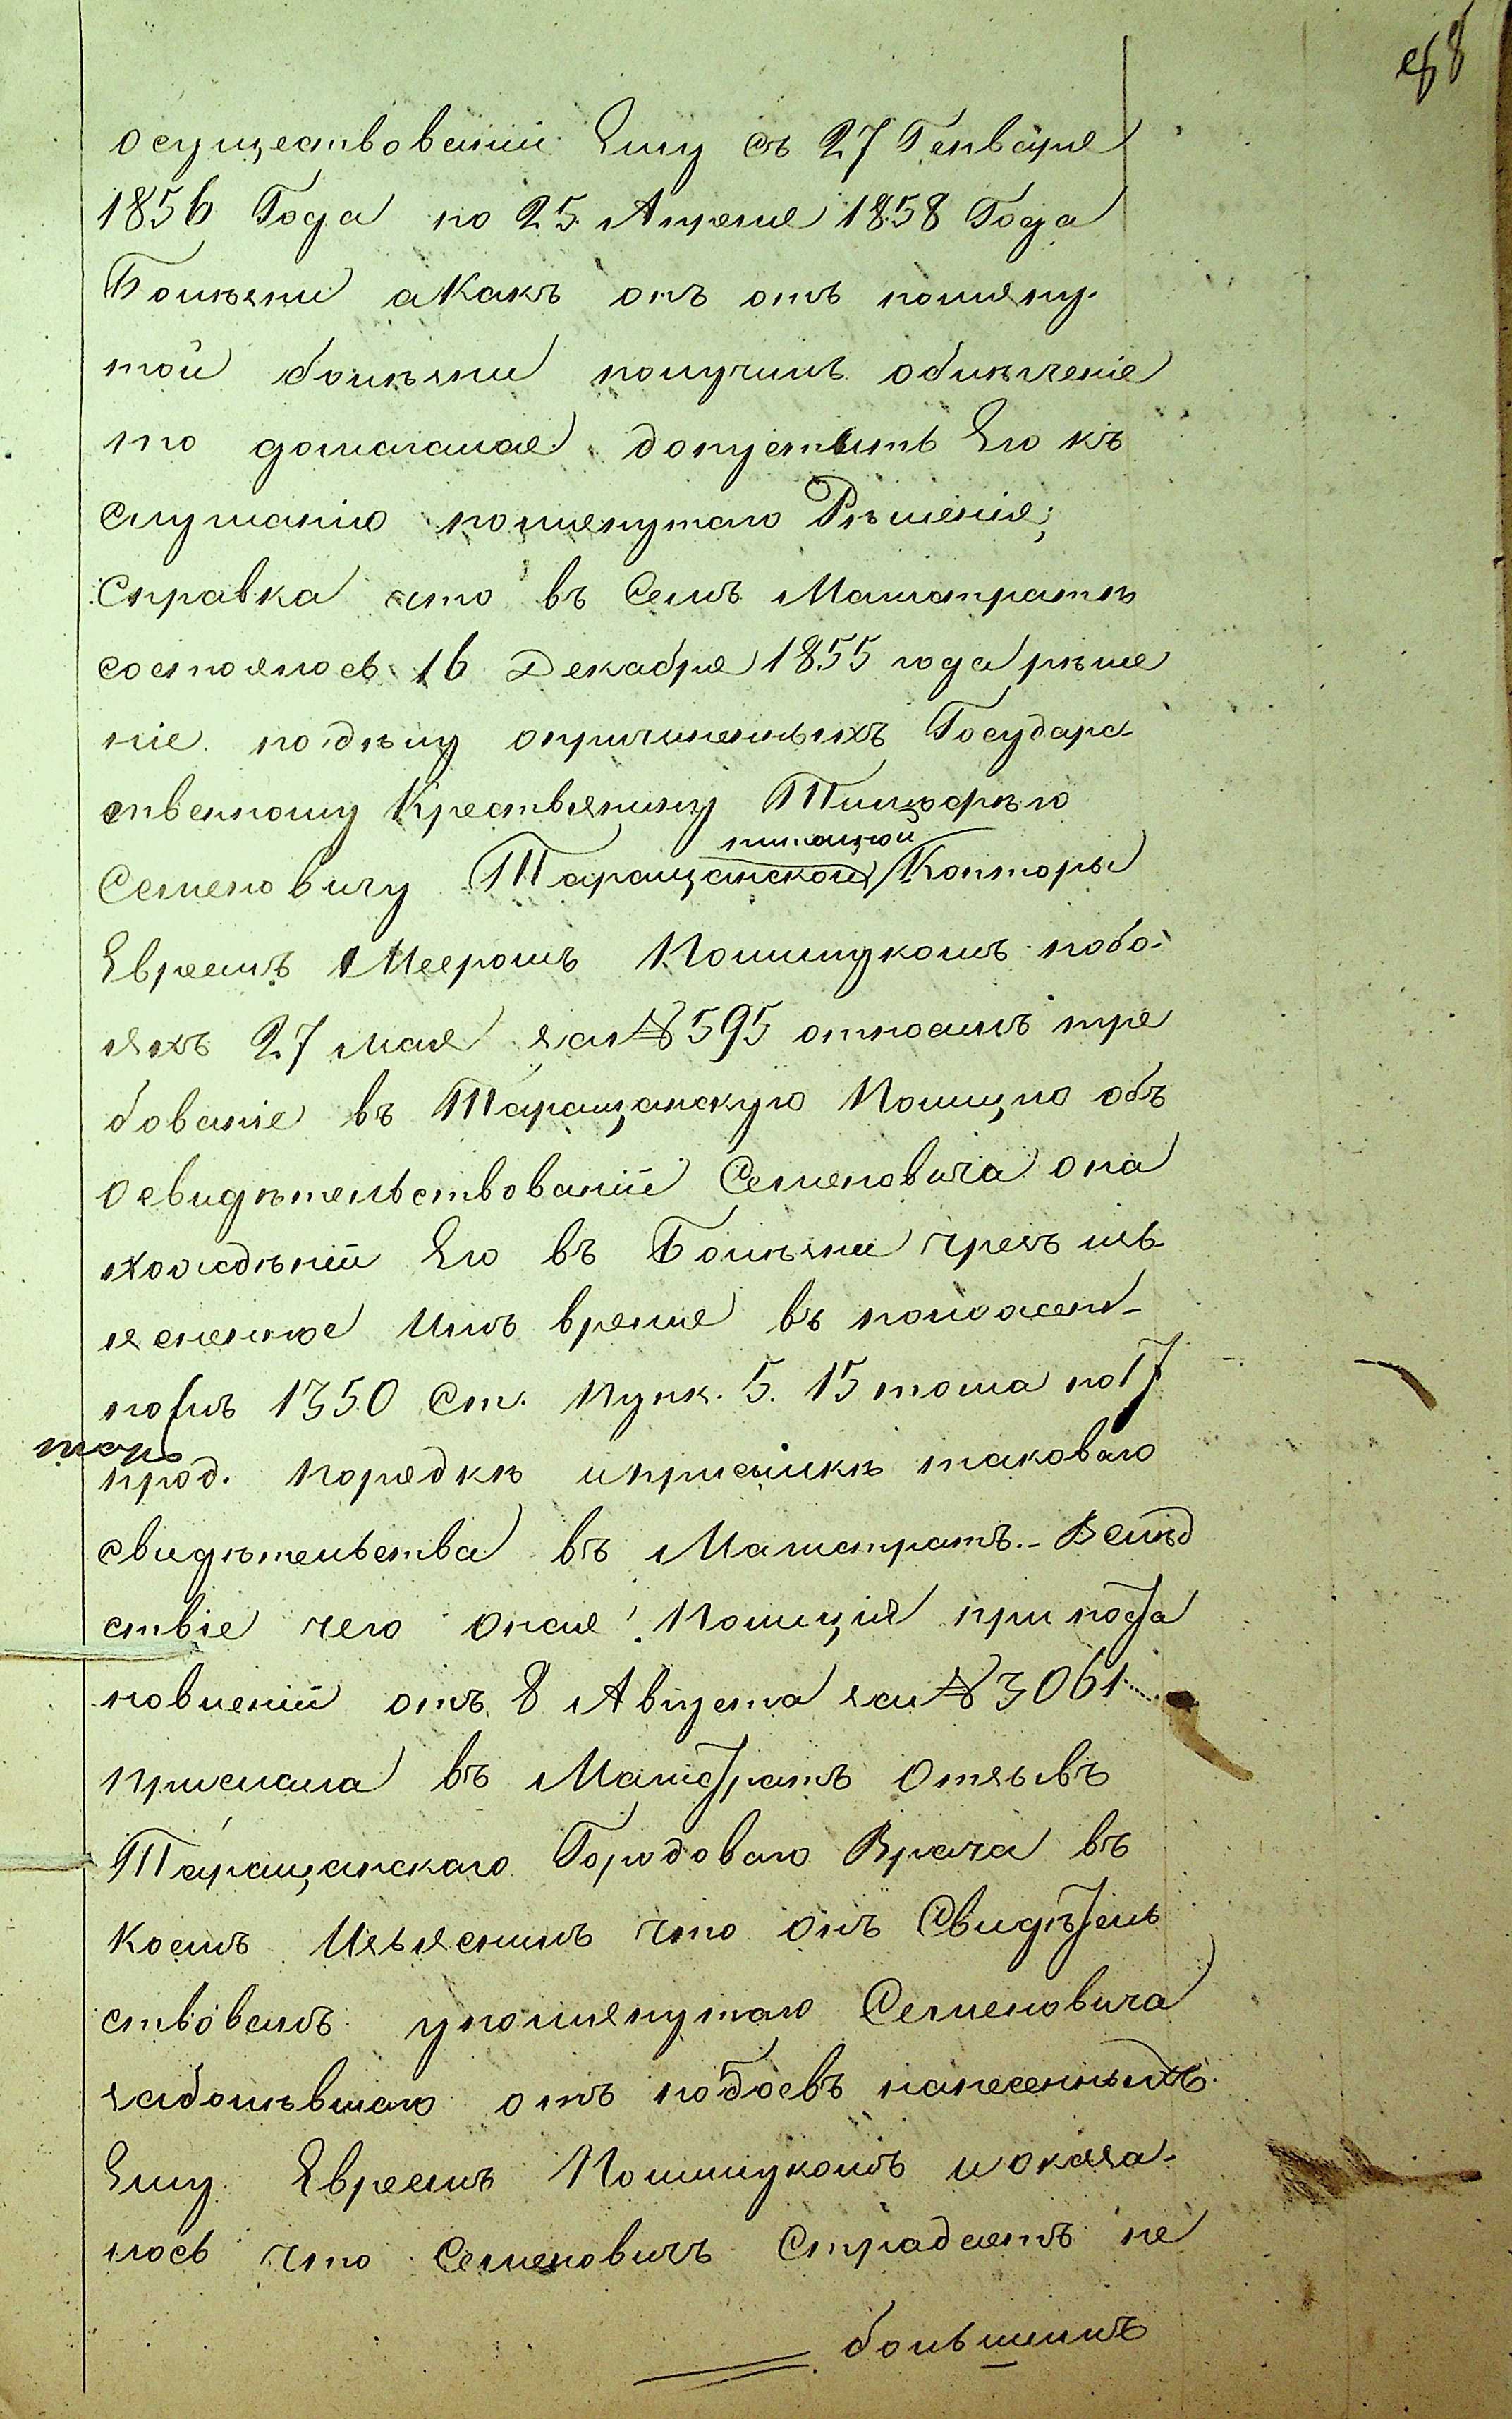 осуществованіи Ему съ 27 Генваря
1856 Года по 25 Апреля 1858 Года
Болѣзни а Какъ онъ отъ помяну-
той болѣзни получилъ облѣгченіе
то домагался допустить Его къ
слушанію помянутаго Рѣшенія;
Справка что въ Семъ Магистратѣ
состоялось 16 Декабря 1855 года рѣше
ніе по дѣлу опричиненныхъ Государс-
твенному Крестьянину Тимофѣю
Семеновичу Таращанской Конторы
Евреемъ Мееромъ Полищукомъ побо-
яхъ 27 мая за № 595 относилъ тре
бованіе въ Таращанскую Полицію объ
освидѣтельствованіи Семеновича она
хождѣніи Его въ Болѣзни чрезъ изъ-
ясненное Имъ время въ положен-
номъ 1350 Ст. Пунк. 5. 15 тома по 17
прод. порядкѣ и присылкѣ таковаго
свидѣтельства въ Магистратъ.- Вслѣд
ствіе чего оная Полиція при поста
новленіи отъ 8 Августа за № 3061
прислала въ Магистратъ Отзывъ
Таращанскаго Городоваго Врача въ
коемъ Изъяснилъ что онъ Свидѣтель
ствовалъ упомянутаго Семеновича
заболѣвшаго отъ побоевъ нанесенныхъ
Ему Евреемъ Полищукомъ и оказа-
лось что Семеновичъ Страдаетъ не
большимъ